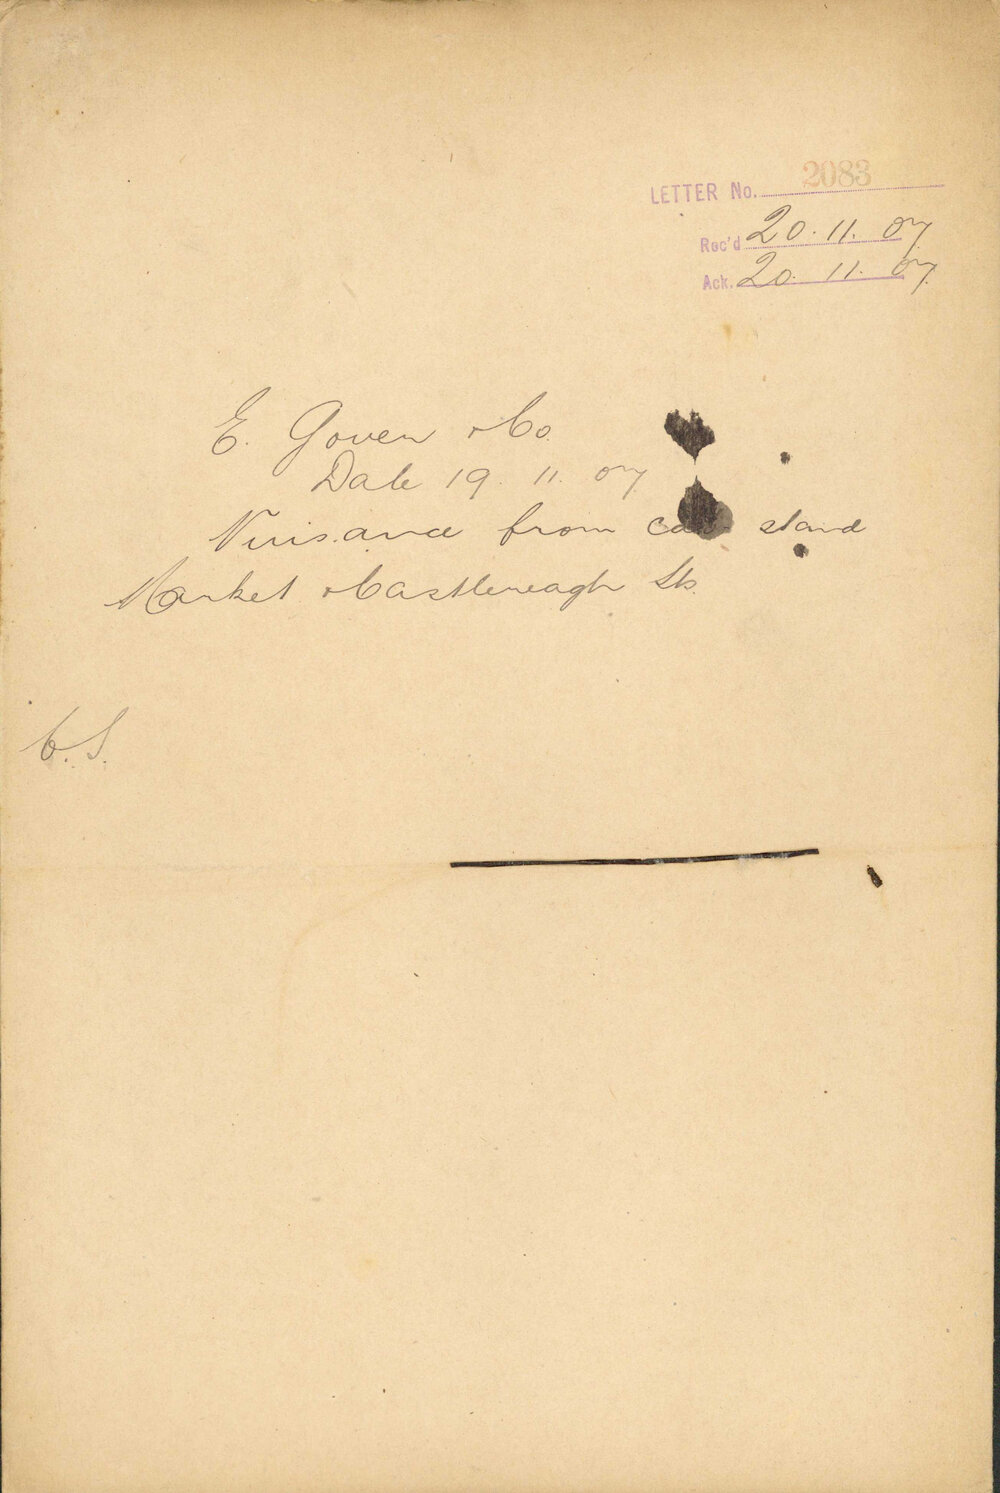 LETTER No. 2083
Rec'd 20.11.07
Ack. 20.11.07.
E. Goven & Co.
Date 19.11.07
Nuisance from cab stand
Market & Castlereagh Sts.
C.S.